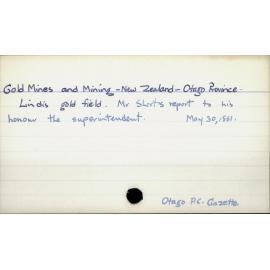 Gold Mines and Mining - New Zealand - Otago Province.
Lindis gold field. Mr Short's report to his
honour the superintendent. May 30, 1861.
Otago P.C. Gazette.